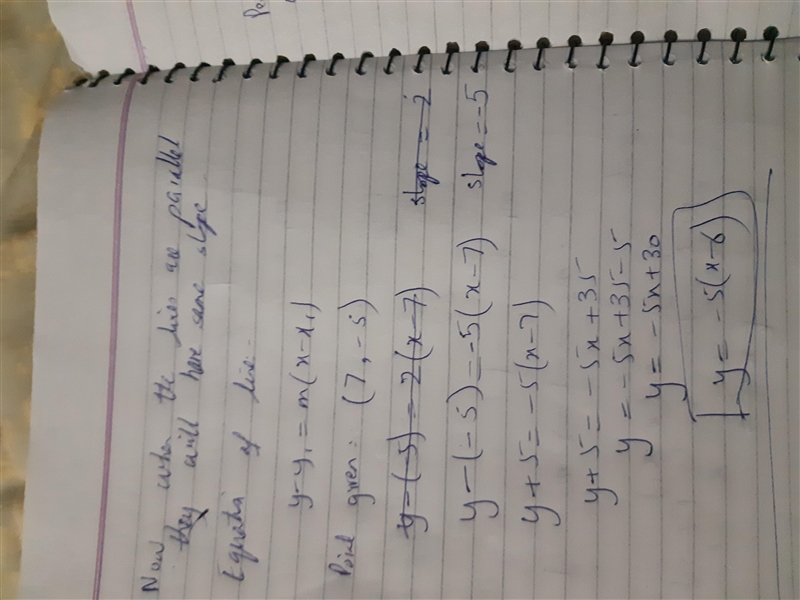 Now when the lines are parallel
they will have same slope
Equation of line:-
y-y₁ = m(x-x₁)
Point given: (7, -5)
y-(-5) = 2(x-7) slope = 2
y-(-5) = -5(x-7) slope = -5
y+5 = -5(x-7)
y+5 = -5x+35
y = -5x+35-5
y = -5x+30
y = -5(x-6)